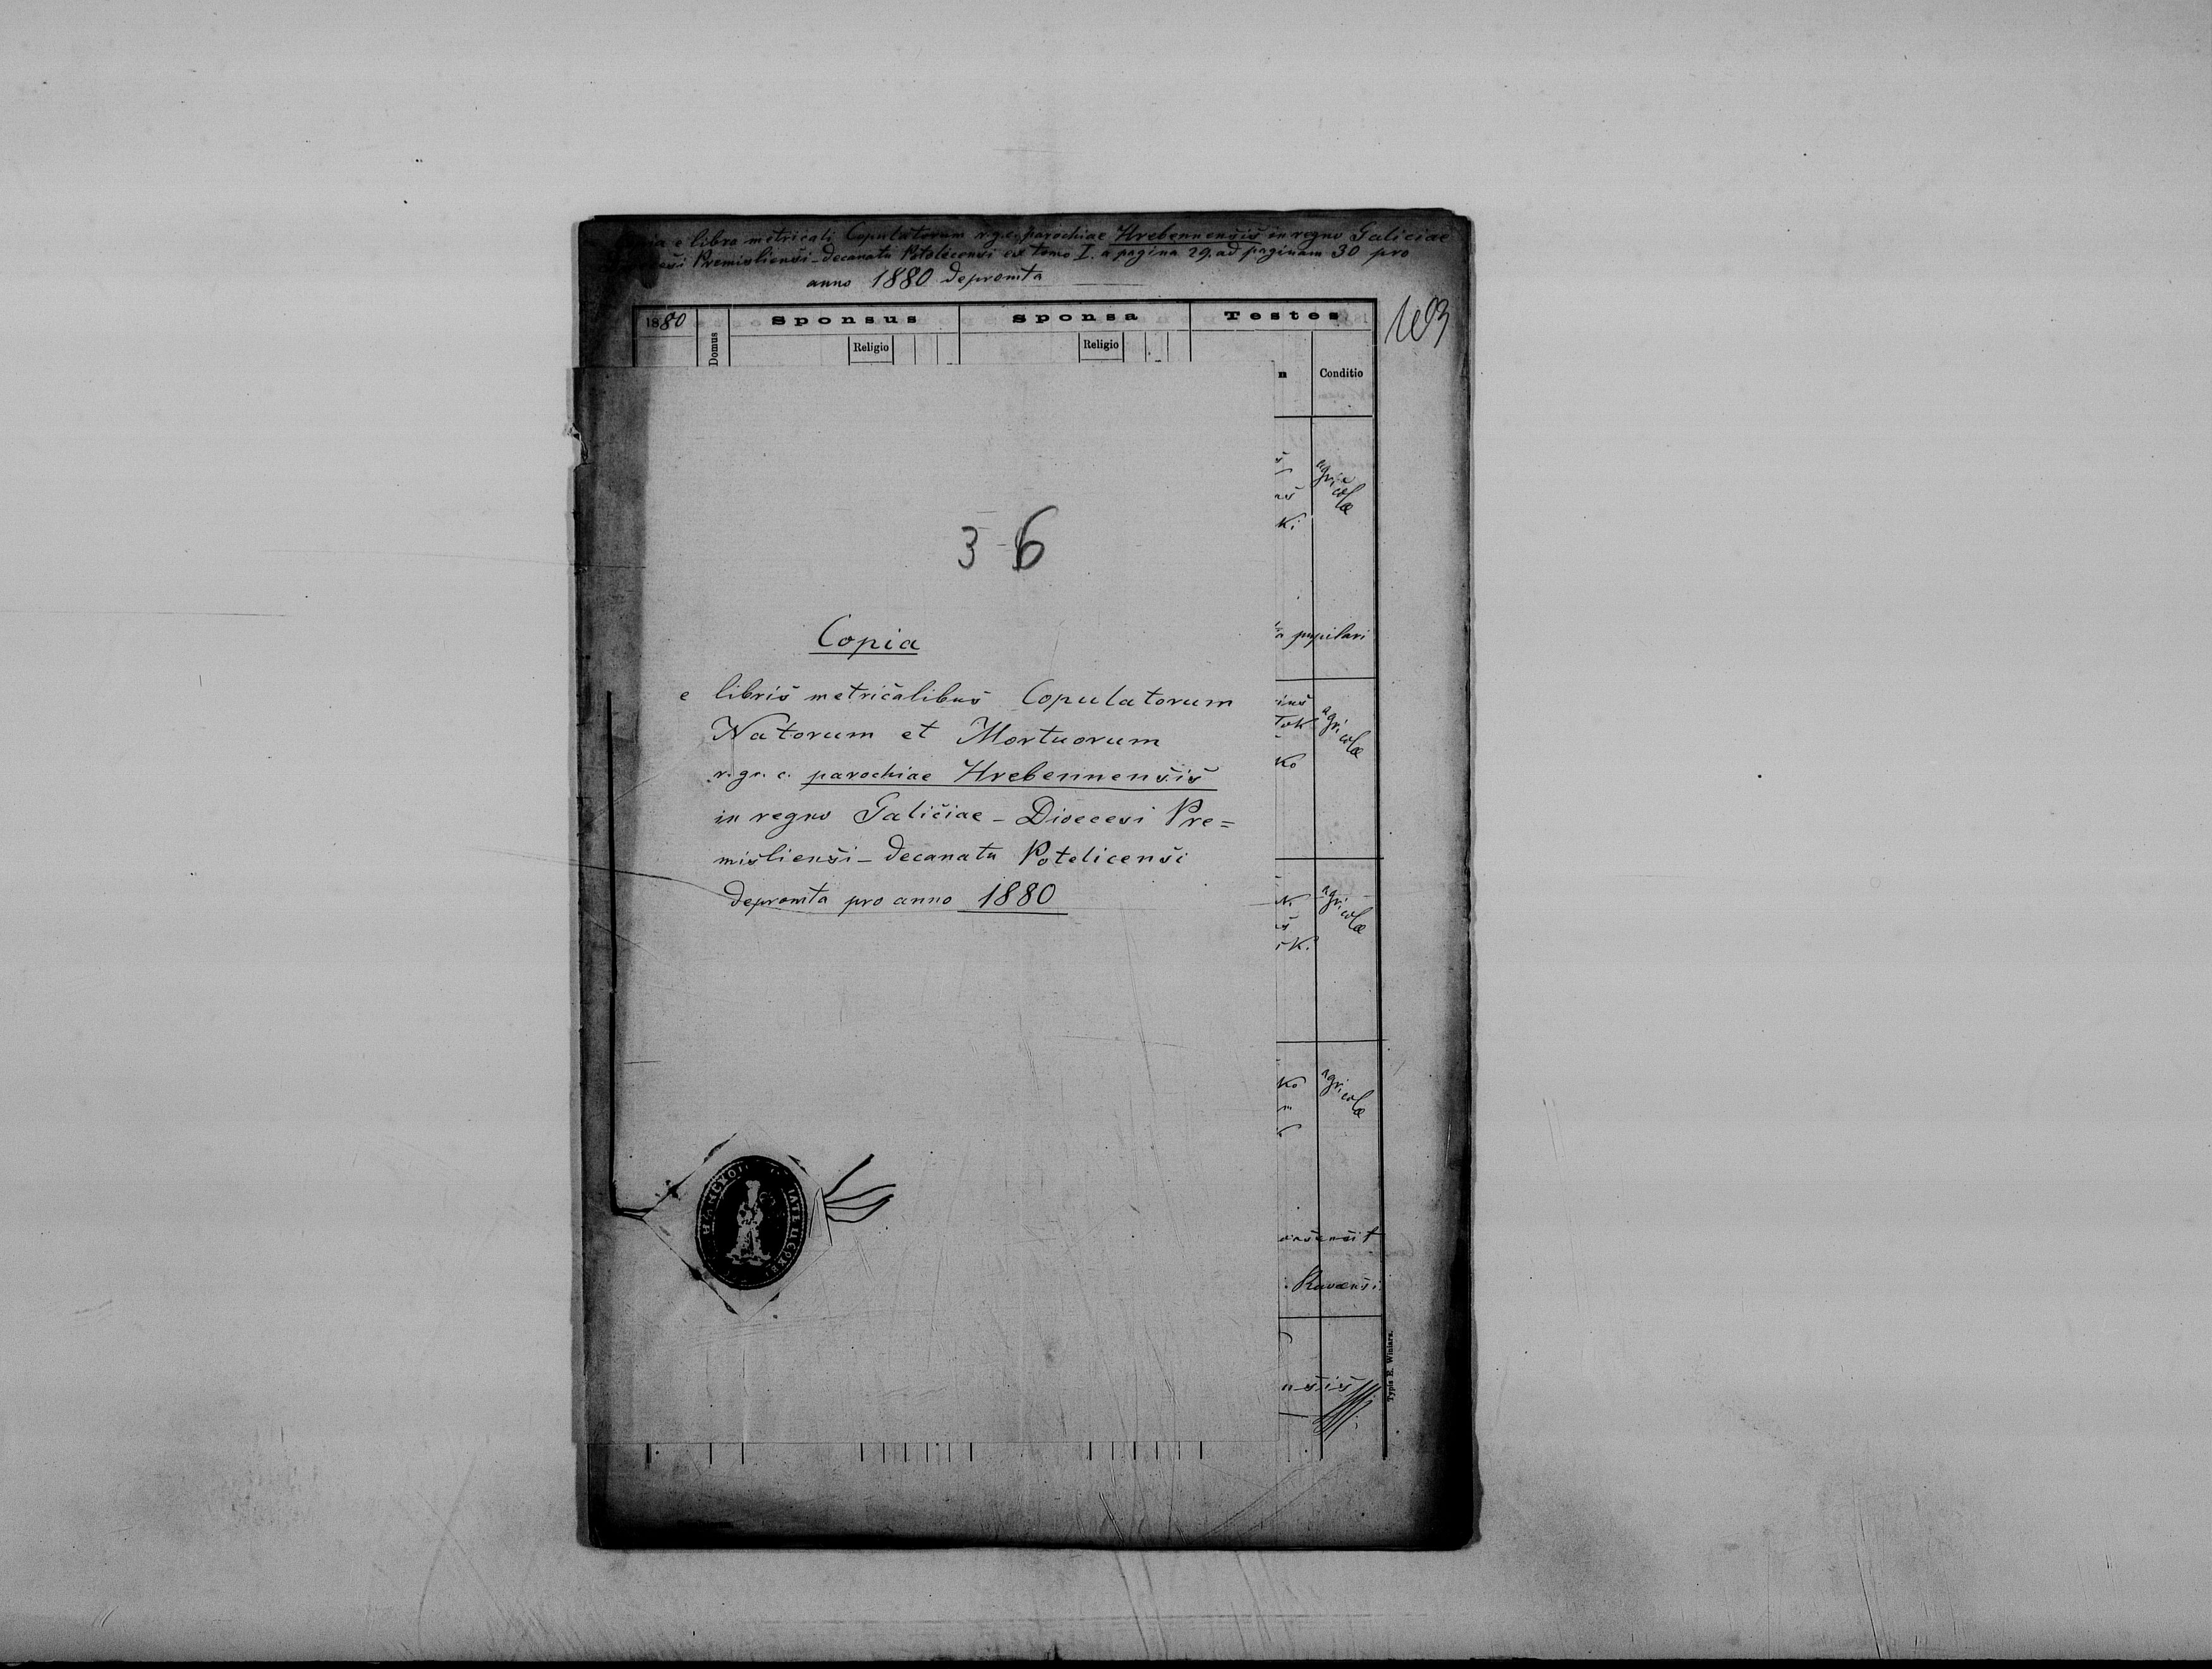 e libro metricali Copulatorum r.g.c. parochiae Hrebennensis in regno Galiciae
Premisliensi - decanatu Potelicensi ex tomo I. a pagina 29. ad paginam 30 pro
anno 1880 depromta
1880 Sponsus Sponsa Testes
Domus Religio Religio
n Conditio
agricolæ
ki
3 6
Copia
pupilari
e libris metricalibus Copulatorum
Natorum et Mortuorum
agricolæ
ko
r. gr. c. parochiae Hrebennensis
in regno Galiciae - Dioecesi Pre=
misliensi - decanatu Potelicensi
depromta pro anno 1880
agricolæ
ik.
ko agricolæ
Ravensi
nsis
Typis E. Winiarz.